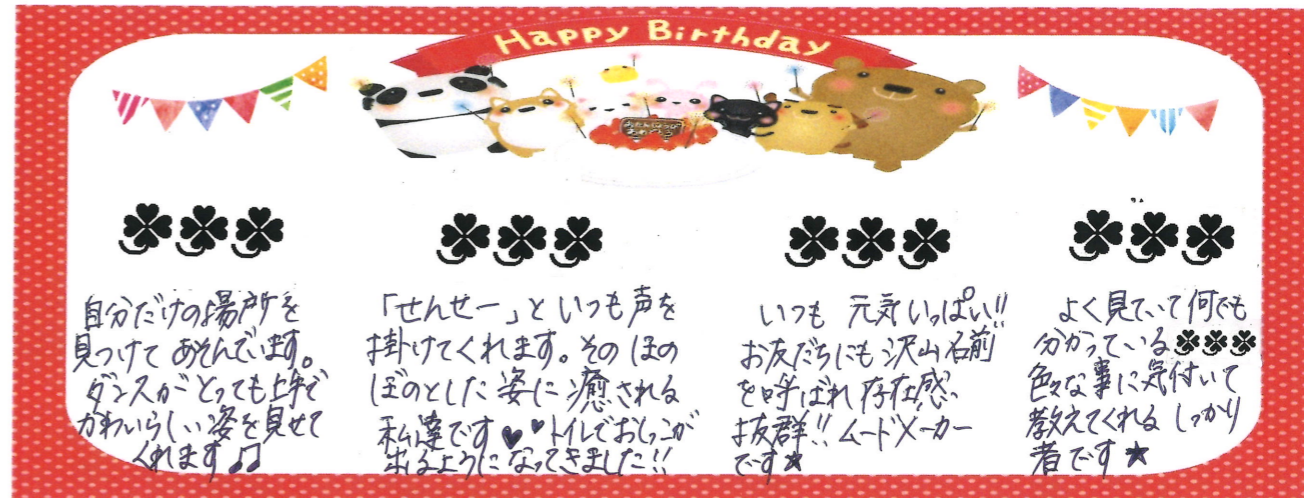 Happy Birthday
おたんじょうび
おめでとう
自分だけの場所を
見つけて あそんでいます。
ダンスが とっても上手で
かわいらしい姿を見せて
くれます♫
「せんせー」と いつも 声を
掛けてくれます。その ほの
ぼのとした 姿に 癒される
私達です♥♥トイレでおしっこが
出るように なってきました!!
いつも 元気いっぱい!!
お友だちにも 沢山 名前
を呼ばれ 存在感
抜群!! ムードメーカー
です★
よく見ていて 何でも
分かっている
色々な事に気付いて
教えてくれる しっかり
者です★